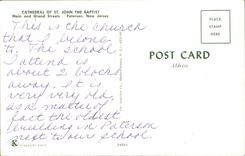 CATHEDRAL OF ST. JOHN THE BAPTIST
Main and Grand Streets Paterson, New Jersey
This is the church
that I belong
to. The school
I attend is
about 2 blocks
away. It is
very very old
as a matter of
fact the oldest
building in Paterson
next to our school.
PLACE
STAMP
HERE
POST CARD
Address